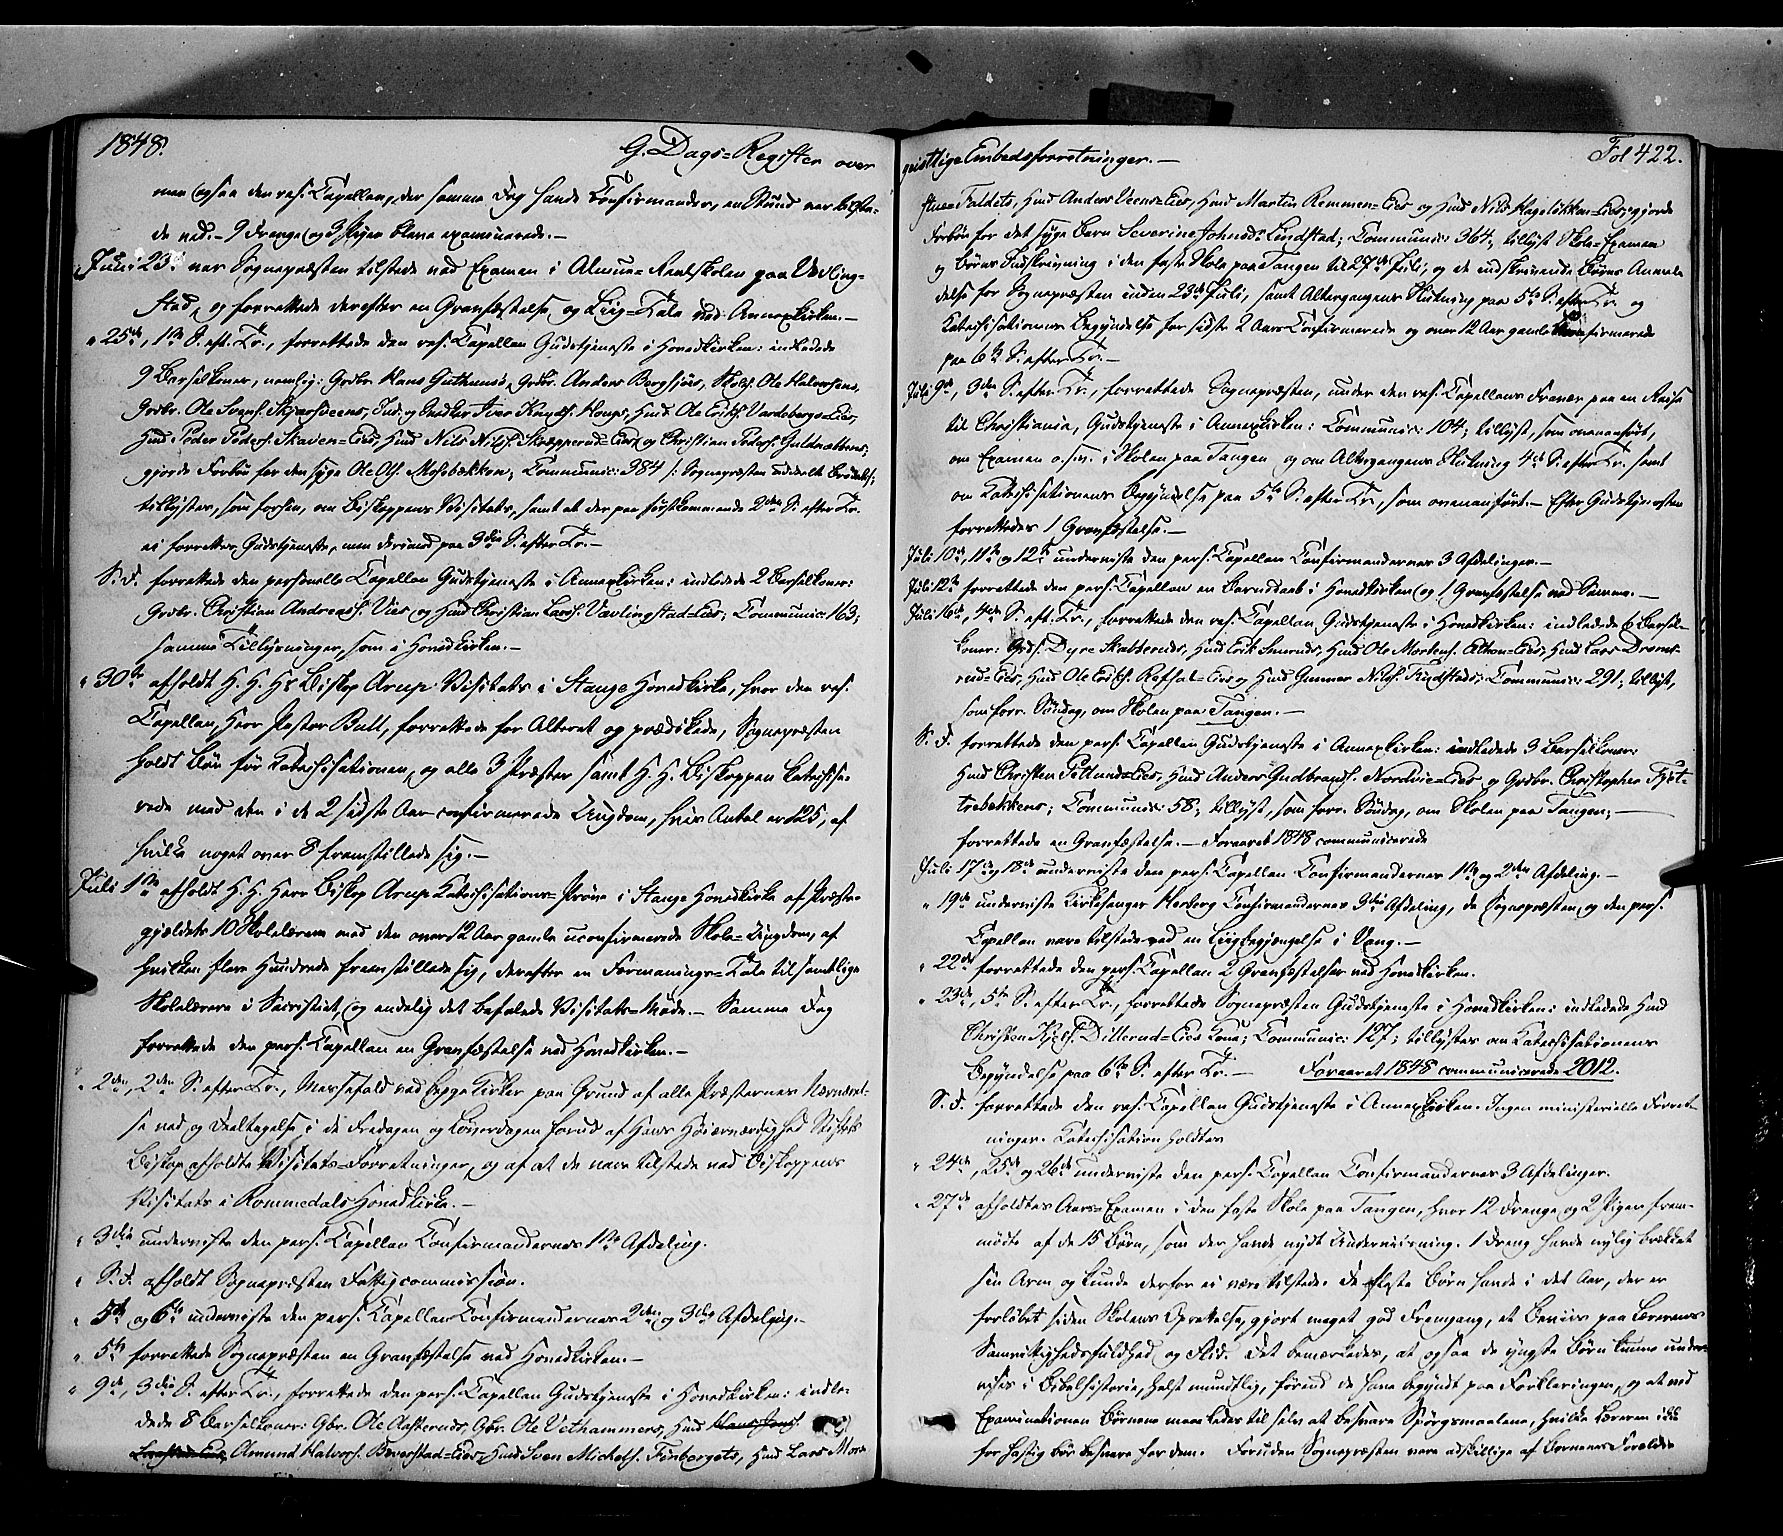 1848.
G. Dags=Register over
men ogsaa den res. Capellan, der samme Dag havde Confirmander, en Stund var tilste-
de ved. – 9 Drenge og 3 Piger bleve examinerede. –
Juni 23de var Sognepræsten tilstede ved Examen i Almue-Realskolen paa Vevling-
stad, og forrettede derefter en Gravfæstelse og Liig-Tale ved Annexkirken. –
" 25de, 1ste S. eft. Tr., forrettede den res. Capellan Gudstjeneste i Hovedkirken: indledede
9 Barselkoner, nemlig: Grdbr. Hans Guthensø, Grdbr. Anders Bergsjøs, Skolh. Ole Halvorsens,
Grdbr. Ole Svends. Skjærsdeens, Ind. og Iver Knuds. Hougs, Huusmd Ole Eriks. Vardebergs-Eies,
Huusmd Peder Peders. Skaven-Eies, Huusmd Nils Nils. Skrepperud-Eies og Christian Peders. Guldbakkens;
gjorde Forbøn for den syge Ole Ols. Mosebækken; Communic: 384 /: Sognepræsten uddeelte Brødet:/;
tillystes, som forhen, om Biskoppens Visitats, samt at der paa førstkommende 2den S. efter Tr.
ei forrettes Gudstjeneste, men derimod paa 3die S. efter Tr. –
S. D. forrettede den personelle Capellan Gudstjeneste i Annexkirken: indledede 2 Barselkoner:
Grdbr. Christian Andreas. Vies og Huusmd Christian Lars. Vævlingstad-Eies; Communic: 163;
samme Tillysninger, som i Hovedkirken. –
" 30te afholdt H. H. Hr Biskop Arup Visitats i Stange Hovedkirke, hvor den res.
Capellan, Herr Pastor Bull, forrettede for Alteret og prædikede, Sognepræsten
holdt Bøn før Katechisationen, og alle 3 Præster samt H. H. Biskoppen katechise-
rede med den i de 2 sidste Aar confirmerede Ungdom, hvis Antal er 125, af
hvilke noget over 8 fremstillede sig. –
Juli 1ste afholdt H. H. Herr Biskop Arup Katechisations-Prøve i Stange Hovedkirke af Præste-
gjeldets 10 Skolelærere med den over 12 Aar gamle uconfirmerede Skole-Ungdom, af
hvilken flere Hundrede fremstillede sig, derefter en Formanings-Tale til samtlige
Skolelærere i Sacristiet, og endelig det befalede Visitats-Møde. – Samme Dag
forrettede den pers. Capellan en Gravfæstelse ved Hovedkirken. –
" 2den, 2den S. efter Tr., Messefald ved begge Kirker paa Grund af alle Præsternes Nærværel-
se ved og Deeltagelse i de Fredagen og Løverdagen forud af Hans Høiærværdighed Stifts
Biskop afholdte Visitats-Forretninger, og af at de vare tilstede ved Biskoppens
Visitats i Rommedals Hovedkirke. –
" 3die underviste den pers. Capellan Confirmandernes 1ste Afdeling.
" S. D. afholdt Sognepræsten Fattigcommission.
" 5te og 6te underviste den pers. Capellan Confirmandernes 2den og 3die Afdeling. –
" 5te forrettede Sognepræsten en Gravfæstelse ved Hovedkirken. –
" 9de, 3die S. efter Tr., forrettede den pers. Capellan Gudstjeneste i Hovedkirken: indle-
dede 8 Barselkoner: Gbr. Ole Aasteruds, Gbr. Ole Vethammers, Huusmd
Amund Halvors. Beverstad-Eies, Huusmd Sven Michels. Finborgets, Huusmd Lars Moen
geistlige Embedsforretninger. –
Fol 422.
stue-Feldets, Huusmd Anders Veens-Eies, Huusmd Martin Remmen-Eies og Huusmd Nils Hageløkken-Eies; gjorde
Forbøn for det syge Barn Severine Johnsdr. Lindstad; Communic: 364; tillyst Skole-Examen
og Børns Indskrivning i den faste Skole paa Tangen til 27de Juli, og de indskrivende Børns Anmel-
delse for Sognepræsten inden 23de Juli, samt Altergangens Slutning paa 5te S. efter Tr. og
Katechisationens Begyndelse for sidste 2 Aars Confirmerede og over 12 Aar gamle Uconfirmerede
paa 6te S. efter Tr. –
Juli 9de, 3die S. efter Tr., forrettede Sognepræsten, under den res. Capellans Fravær paa en Reise
til Christiania, Gudstjeneste i Annexkirken: Communic: 104; tillyst, som ovenanført,
om Examen o.s.v. i Skolen paa Tangen og om Altergangens Slutning 4de S. efter Tr. samt
om Katechisationens Begyndelse paa 5te S. efter Tr., som ovenanført. – Efter Gudstjenesten
forrettedes 1 Gravfæstelse. –
Juli 10de, 11te og 12te underviste den pers. Capellan Confirmandernes 3 Afdelinger. –
Juli 12te forrettede den pers. Capellan en Barnedaab i Hovedkirken og 1 Gravfæstelse ved Samme. –
Juli 16de, 4de S. eft. Tr., forrettede den res. Capellan Gudstjeneste i Hovedkirken: indledede 6 Barsel-
koner: Grdbr. Dyre Skatteruds, Huusmd Erik Smeruds, Huusmd Ole Mortens. Athon-Eies, Huusmd Lars Drons-
rud-Eies, Huusmd Ole Eriks. Refsal-Eies og Huusmd Gunner Nils. Findstads; Communic: 291; tillyst,
som forr. Søndag, om Skolen paa Tangen. –
S. D. forrettede den pers. Capellan Gudstjeneste i Annexkirken: indledede 3 Barselkoner:
Huusmd Christen Petlund-Eies, Huusmd Anders Gudbrands. Nordvie-Eies og Grdbr. Christopher Tyst-
trebekkens; Communic: 58; tillyst, som forr. Søndag, om Skolen paa Tangen; –
forrettede en Gravfæstelse. – Foraaret 1848 communicerede
Juli 17de og 18de underviste den pers. Capellan Confirmandernes 1ste og 2den Afdeling. –
" 19de underviste Kirkesanger Herberg Confirmandernes 3die Afdeling, da Sognepræsten og den pers.
Capellan vare tilstede ved en Liigbegjængelse i Vang. –
" 22de forrettede den pers. Capellan 2 Gravfæstelser ved Hovedkirken.
" 23de, 5te S. efter Tr., forrettede Sognepræsten Gudstjeneste i Hovedkirken: indledede Huusmd
Christen Kjels. Dillerud-Eies Kone; Communic: 127; tillystes om Katechisationens
Begyndelse paa 6te S. efter Tr. – Foraaret 1848 communicerede 2012.
S. D. forrettede den res. Capellan Gudstjeneste i Annexkirken. Ingen ministerielle Forret-
ninger. Katechisation holdtes
" 24de, 25de og 26de underviste den pers. Capellan Confirmandernes 3 Afdelinger.
" 27de afholdtes Aars-Examen i den faste Skole paa Tangen, hvor 12 Drenge og 2 Piger frem-
mødte af de 15 Børn, som der havde nydt Underviisning. 1 Dreng havde nylig brækket
sin Arm og kunde derfor ei være tilstede. De fleste Børn havde i det Aar, der er
forløbet siden Skolens Oprettelse, gjort meget god Fremgang, et Beviis paa Lærerens
Samvittighedsfuldhed og Flid. Det bemærkedes, at ogsaa de yngste Børn kunne under-
vises i Bibelhistorie, helst mundtlig, førend de have begyndt paa Forklaringen, og at ved
Examinationen Børnene maa ledes til selv at besvare Spørgsmaalene, hvilke Læreren ikke
for hastig bør besvare for dem. Foruden Sognepræsten vare adskillige af Børnenes Forældre